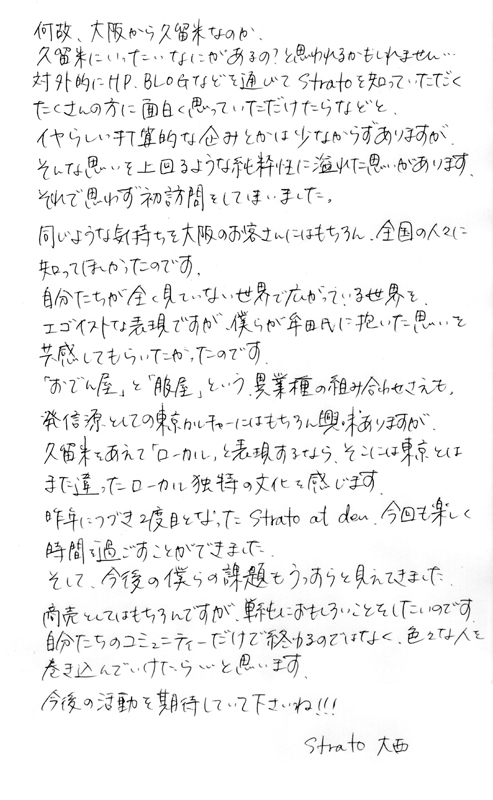 何故、大阪から久留米なのか.
久留米にいったいなにがあるの?と思われるかもしれません…
対外的にHP.BLOGなどを通じてStratoを知っていただく
たくさんの方に面白く思っていただけたらなどと、
イヤらしい打算的な企みとかは少なからずありますが、
そんな思いを上回るような純粋性に溢れた思いがあります.
それで思わず初訪問をしてしまいました。
同じような気持ちを大阪のお客さんにはもちろん、全国の人々に
知ってほしかったのです.
自分たちが全く見ていない世界で広がっている世界を、
エゴイストな表現ですが、僕らが牟田氏に抱いた思いを
共感してもらいたかったのです.
「おでん屋」と「服屋」という、異業種の組み合わせさえも。
発信源としての東京カルチャーにはもちろん興味ありますが、
久留米をあえて「ローカル」と表現するなら、そこには東京とは
また違ったローカル独特の文化を感じます.
昨年につづき2度目となったStrato at den、今回も楽しく
時間を過ごすことができました.
そして、今後の僕らの課題もうっすらと見えてきました.
商売としてはもちろんですが、単純におもしろいことをしたいのです.
自分たちのコミュニティーだけで終わるのではなく、色々な人を
巻き込んでいけたら…と思います.
今後の活動を期待していて下さいね!!!
Strato 大西